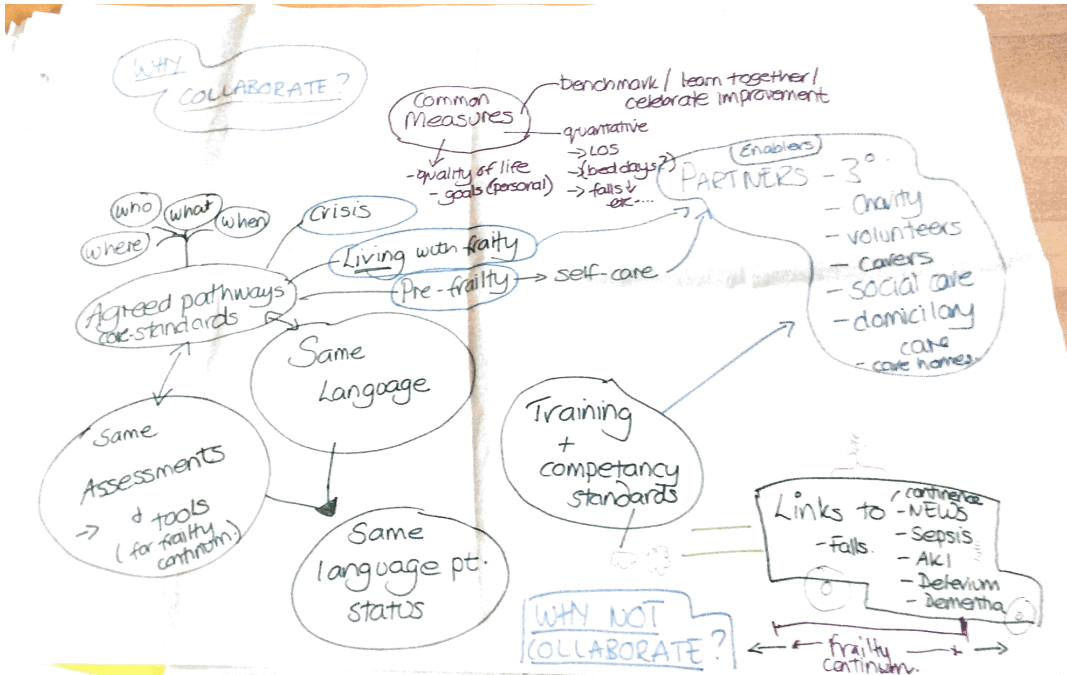 WHY
COLLABORATE?
Common
Measures
benchmark / learn together /
celebrate improvement
quantative
→ LOS
→ (bed days?)
→ falls ↓
etc....
- quality of life
- goals (personal)
Enablers
PARTNERS - 3°.
- Charity
- volunteers
- carers
- social care
- domicilary
care
- care homes.
who
what
when
where
Crisis
Living with frailty
Pre-frailty → self-care
Agreed pathways
care-standards
Same
Language
Same
Assessments
& tools
→ (for frailty
continuum.)
Same
language pt.
status
Training
+
competancy
standards
Links to
- Falls.
continence
- NEWS
- Sepsis
- AKI
- Delerium
- Dementia
WHY NOT
COLLABORATE?
frailty
continuum.